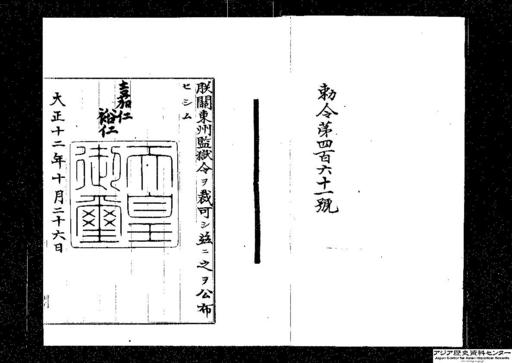 勅令第四百六十一號
朕關東州監獄令ヲ裁可シ玆ニ之ヲ公布
セシム
嘉仁
裕仁
天皇
御璽
大正十二年十月二十六日
アジア歴史資料センター
Japan Center for Asian Historical Records